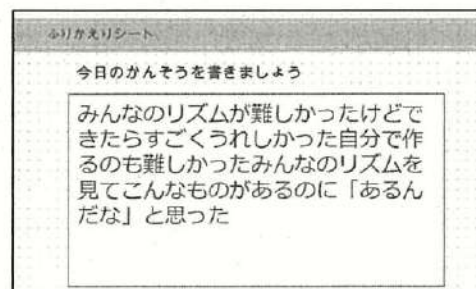 ふりかえりシート
今日のかんそうを書きましょう
みんなのリズムが難しかったけどで
きたらすごくうれしかった自分で作
るのも難しかったみんなのリズムを
見てこんなものがあるのに「あるん
だな」と思った